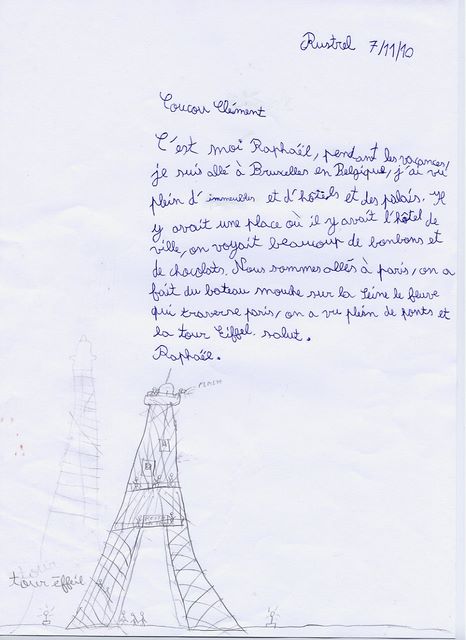 Rustrel 7/11/10
Coucou Clément
C'est moi Raphaël, pendant les vacances,
je suis allé à Bruxelles en Belgique, j'ai vu
plein d'immeubles et d'hôtels et des palais. Il
y avait une place où il y avait l'hôtel de
ville, on voyait beaucoup de bonbons et
de chocolats. Nous sommes allés à paris, on a
fait du bateau mouche sur la Seine le fleuve
qui traverse paris, on a vu plein de ponts et
la tour Eiffel. salut.
Raphaël.
tour
tour éffeil